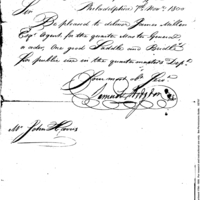 Philadelphia 7th Novr 1800
Sir
Be pleased to deliver James Miller
Esqr Agent for the quarter Master General
or order, One good Saddle and Bridle
for public use in the quartermasters Dept.
Your most Ob Serv
Samuel Hodgdon
Mr John Harris